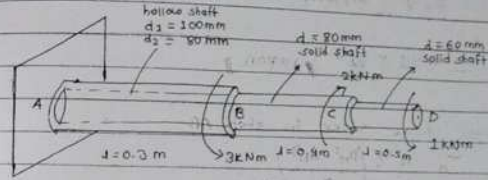 hollow shaft
d1 = 100mm
d2 = 80mm
d = 80mm
solid shaft
d = 60mm
solid shaft
2kNm
A
B
C
D
l=0.3 m
3kNm
l=0.4m
l=0.5m
1kNm